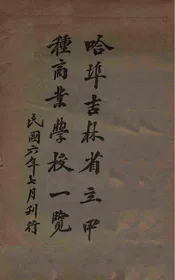 哈埠吉林省立甲
種商業學校一覽
民國六年七月刊行